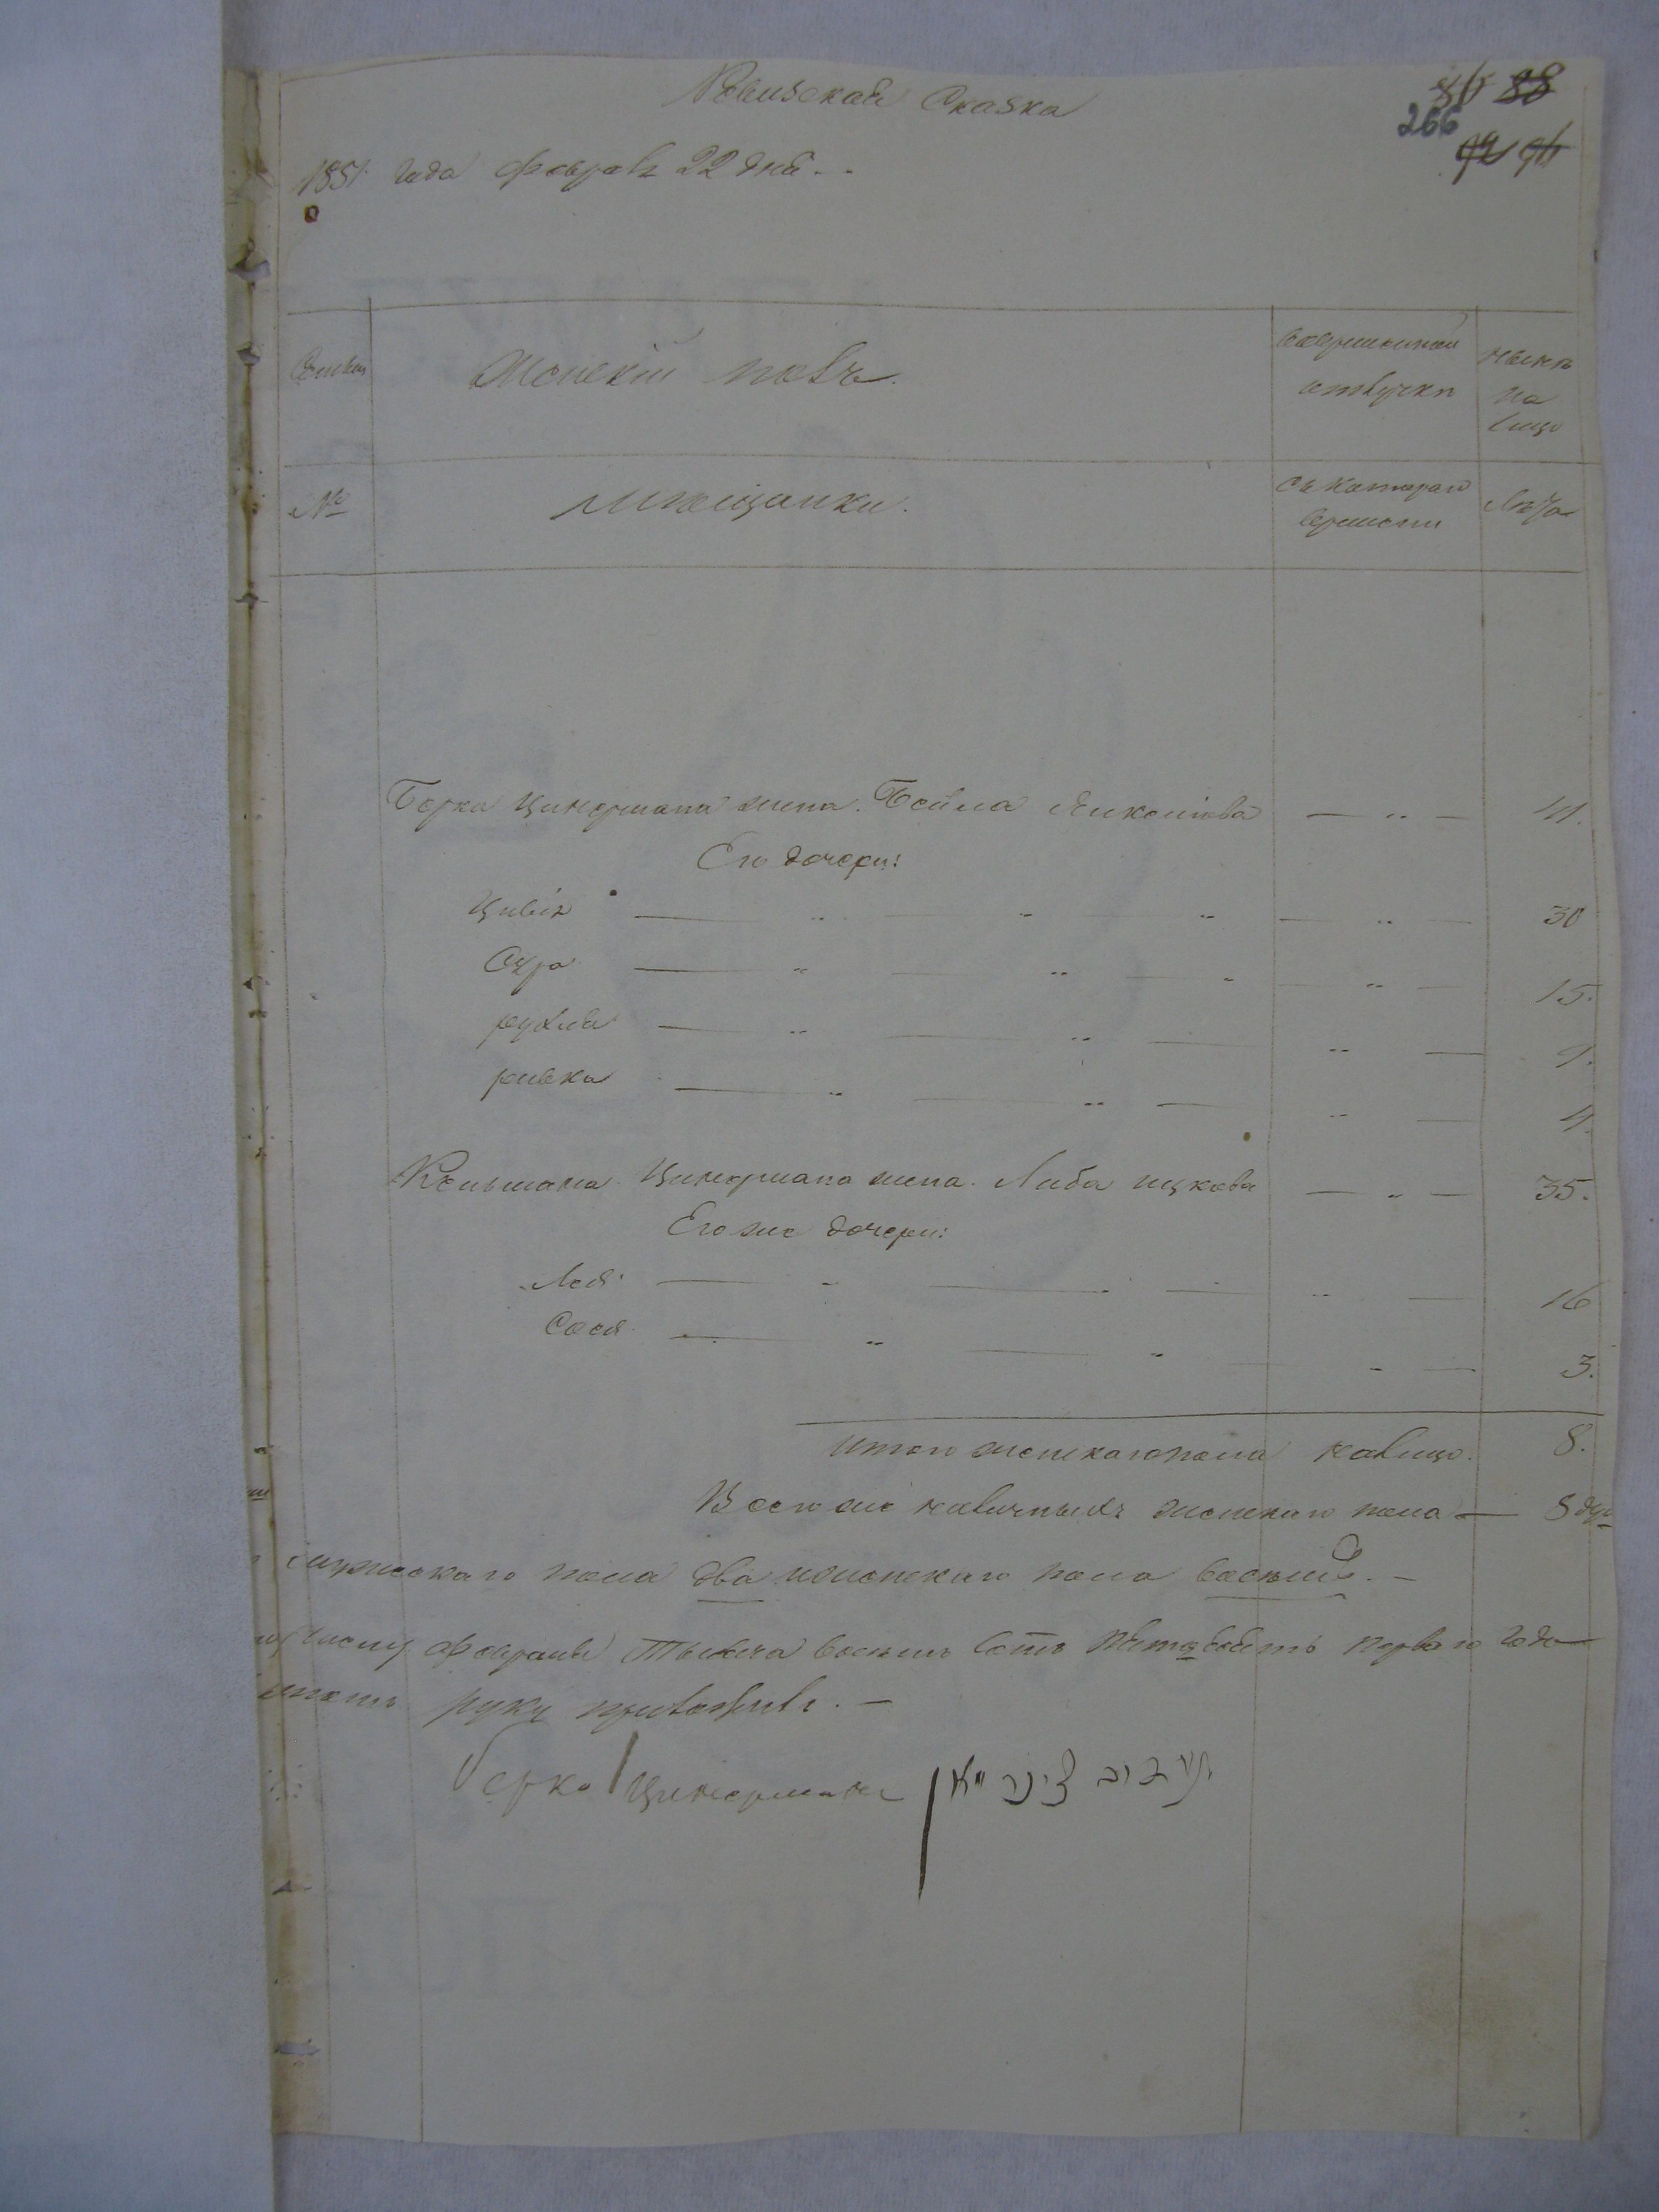 Ревизская Сказка
266
1851 года Февраля 22 дня
Семьи
Женский полъ.
во временной
отлучкѣ
нынѣ
на
лицо
№
Мѣщанки.
Съ котораго
времени
Лѣта
Берка Цинермана жена. Бейла 41.
Его дочери:
Цивiя 30
Сура 15.
рухля 9.
ривка 4.
Кельмана Цинермана жена. Либа ицкова 35.
Его же дочери:
Лея 16
Сося 3.
итого женскаго пола налицо. 8.
Всего же наличныхъ женскаго пола — 8 душ
мужескаго пола два женскаго пола восемь. —
числа февраля Тысяча восемь сотъ пятьдесятъ перваго года
руку приложилъ. —
Берко Цинерманъ